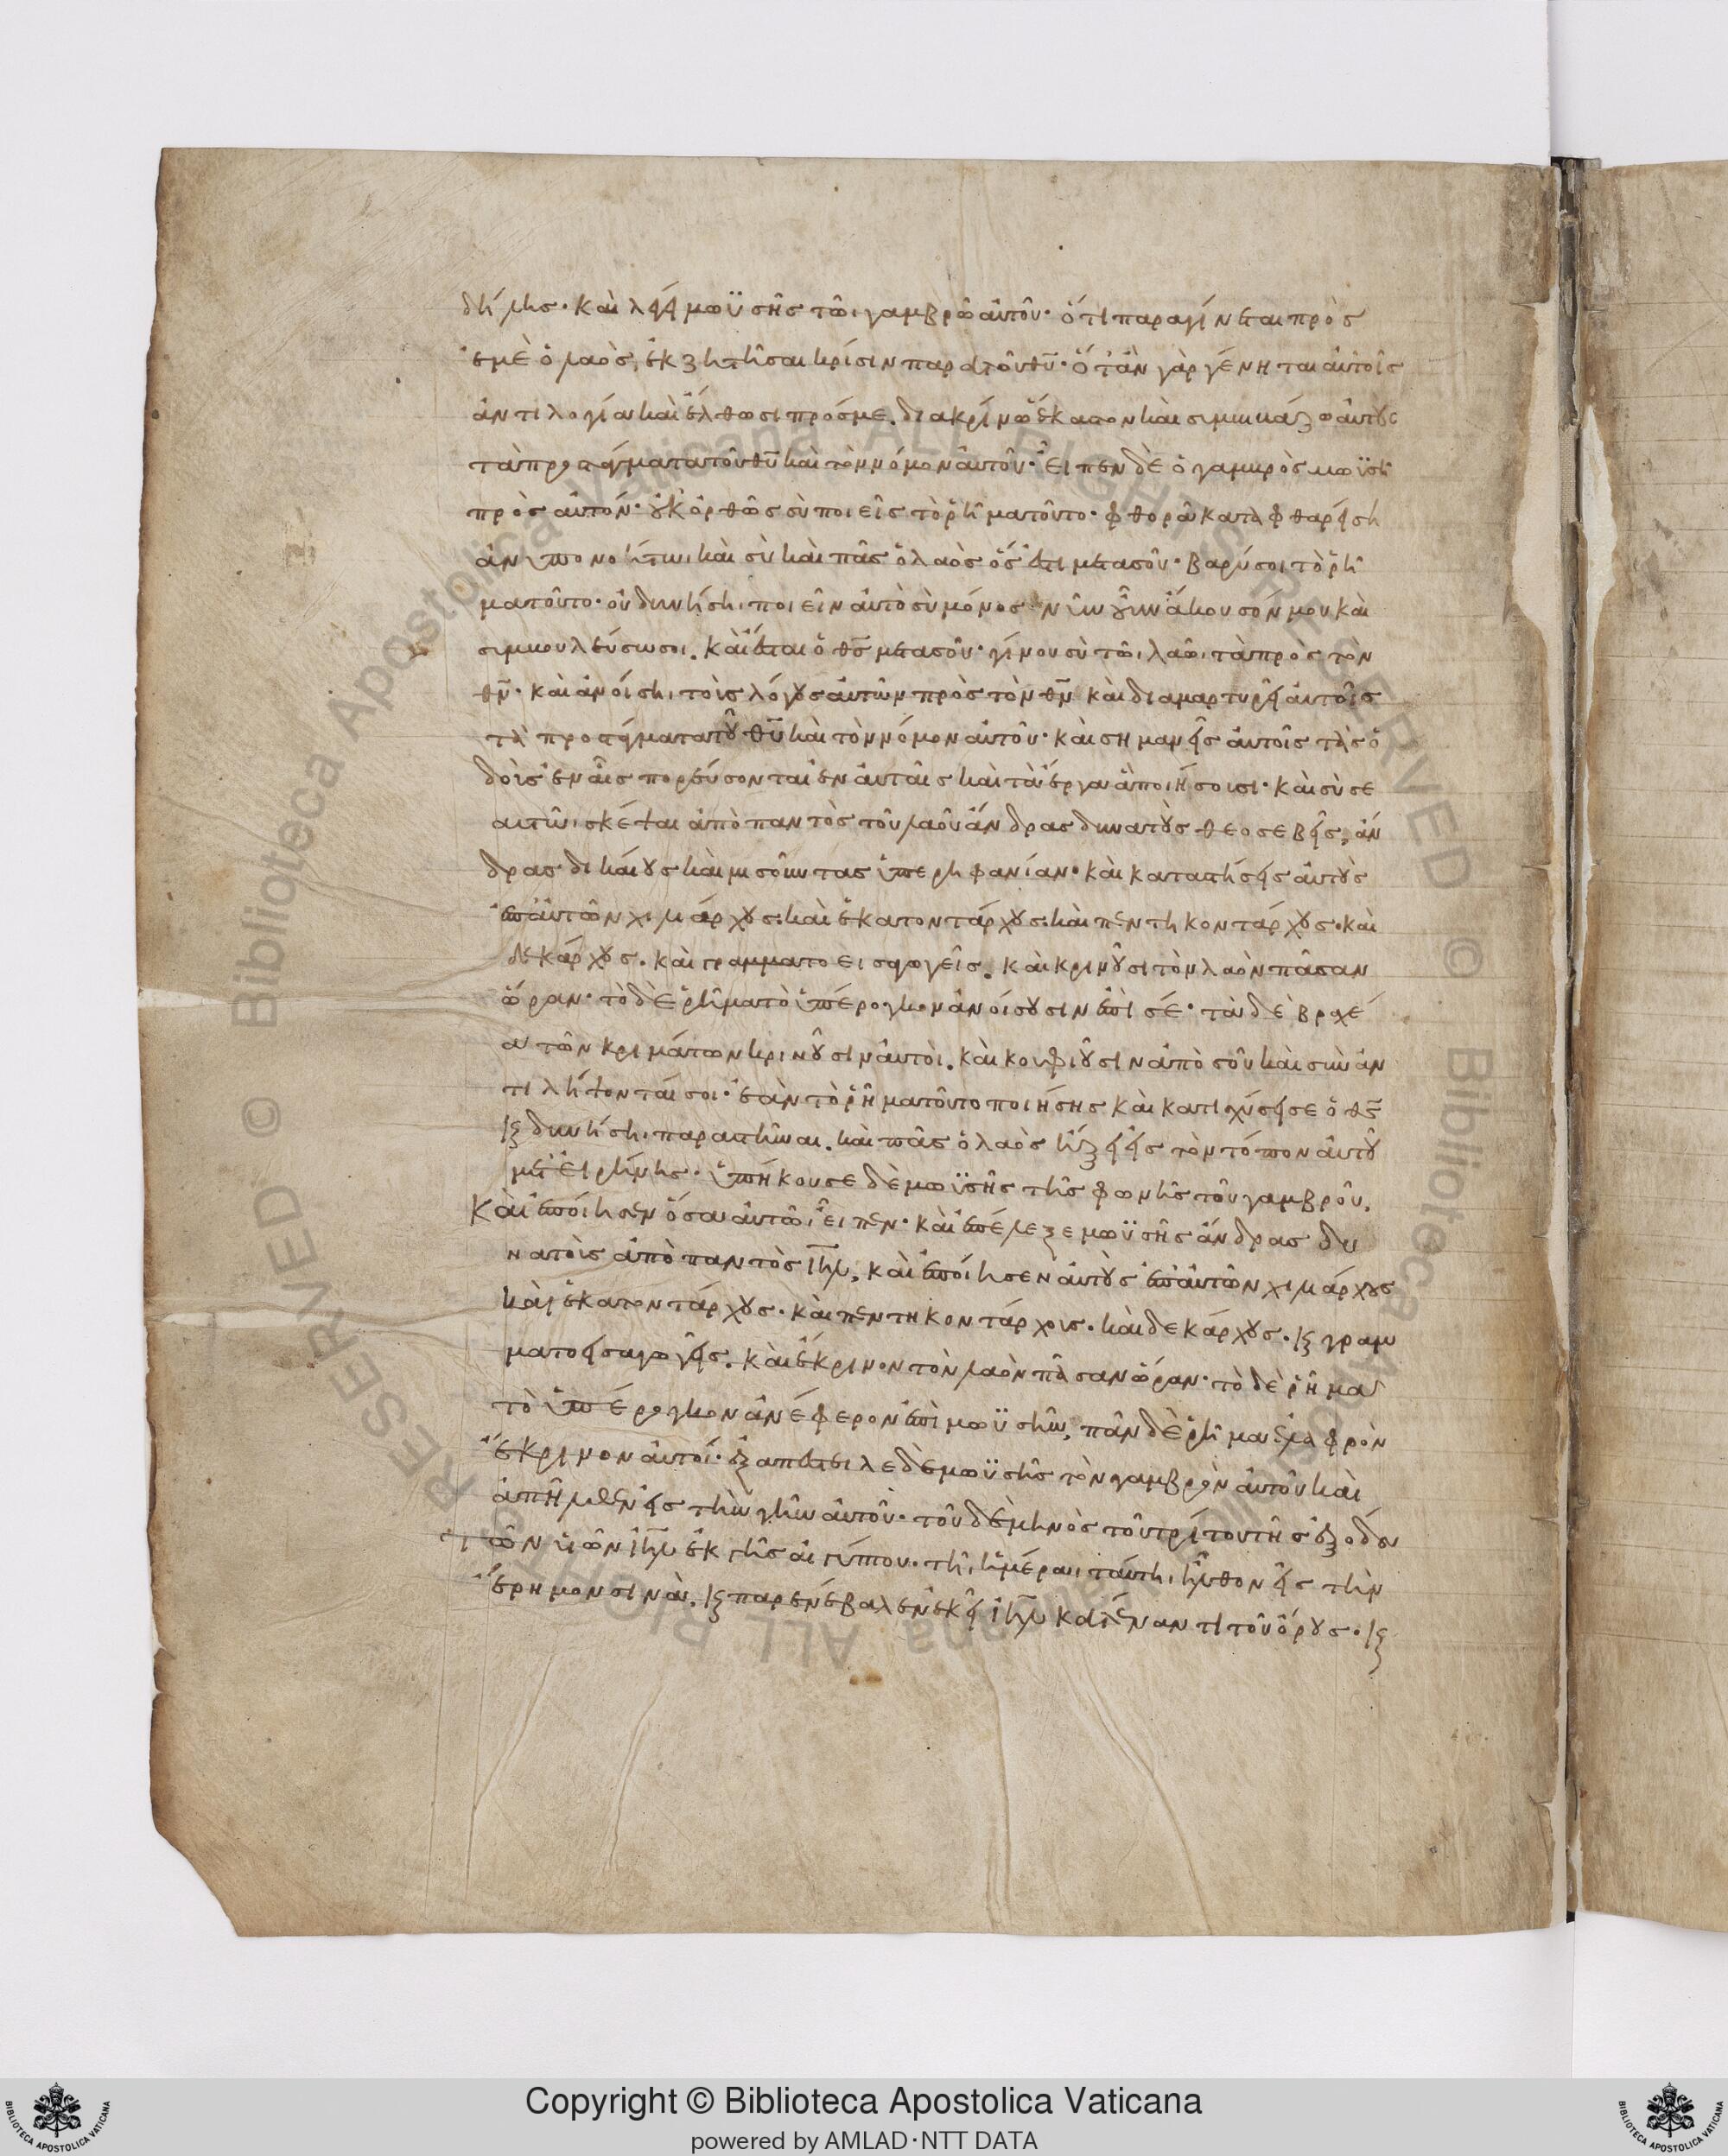 δείλης· καὶ λέγει μωϋσῆς τῶι γαμβρῶ αὐτοῦ· ὅτι παραγίνεται πρὸς
ἐμὲ ὁ λαὸς, ἐκζητῆσαι κρίσιν παρα τοῦ θῦ· ὅταν γὰρ γένηται αὐτοῖς
ἀντιλογία καὶ ἔλθωσι πρός με. διακρίνω ἕκαστον καὶ συμβιβάζω αὐτοὺς
τὰ προστάγματα τοῦ θῦ καὶ τὸν νόμον αὐτοῦ· εἶπεν δὲ ὁ γαμβρὸς μωϋσῆ
πρὸς αὐτόν· οὐκ ὀρθῶς σὺ ποιεῖς τὸ ῥῆμα τοῦτο· φθορᾶ καταφθαρήση
ἀνυπονοήτωι καὶ σὺ καὶ πᾶς ὁ λαὸς ὅς ἐστι μετα σοῦ· βαρύ σοι τὸ ῥῆ
μα τοῦτο· οὐ δυνήσηι ποιεῖν αὐτὸ σὺ μόνος νῦν οὖν ἄκουσόν μου καὶ
συμβουλεύσω σοι. καὶ ἔσται ὁ θς μετα σοῦ· γίνου σὺ τῶι λαῶι τὰ πρὸς τὸν
θν· καὶ ἀνοίσηι τοὺς λόγους αὐτῶν πρὸς τὸν θν καὶ διαμαρτυρῆ αὐτοῖς
τὰ προστάγματα τοῦ θῦ καὶ τὸν νόμον αὐτοῦ· καὶ σημανεῖς αὐτοῖς τὰς ὁ
δοὺς ἐν αἷς πορεύσονται ἐν αὐταῖς καὶ τὰ ἔργα ἃ ποιήσουσι· καὶ σὺ σε
αυτῶι σκέψαι ἀπὸ παντὸς τοῦ λαοῦ ἄνδρας δυνατοὺς θεοσεβεῖς, ἄν
δρας δικαίους καὶ μισοῦντας ὑπερηφανίαν· καὶ καταστήσεις αὐτοὺς
ἐπ αὐτῶν χιλιάρχους· καὶ ἑκατοντάρχους· καὶ πεντηκοντάρχους· καὶ
δεκάρχους. καὶ γραμματοεισαγωγεῖς. καὶ κρινοῦσι τὸν λαὸν πᾶσαν
ὥραν· τὸ δὲ ῥῆμα τὸ ὑπέρογκον ἀνοίσουσιν ἐπὶ σέ· τὰ δὲ βραχέ
α τῶν κριμάτων κρινοῦσιν αὐτοὶ. καὶ κουφιοῦσιν ἀπὸ σοῦ καὶ συν αν
τιλήψονταί σοι· ἐὰν τὸ ῥῆμα τοῦτο ποιήσης καὶ κατισχύσει σε ὁ θς
κ δυνήσηι παραστῆναι. καὶ πᾶς ὁ λαὸς ἥξει εἰς τὸν τόπον αὐτοῦ
μετ εἰρήνης· ὑπήκουσε δὲ μωϋσῆς τῆς φωνῆς τοῦ γαμβροῦ.
Καὶ ἐποίησεν ὅσα αὐτῶι εἶπεν· καὶ ἐπέλεξε μωϋσῆς ἄνδρας δυ
νατοὺς ἀπὸ παντὸς ιηλ, καὶ ἐποίησεν αὐτοὺς ἐπ αὐτῶν χιλιάρχους
καὶ ἑκατοντάρχους· καὶ πεντηκοντάρχους· καὶ δεκάρχους· κ γραμ
ματοεισαγωγεῖς. καὶ ἔκρινον τὸν λαὸν πᾶσαν ὥραν· τὸ δὲ ῥῆμα
τὸ ὑπέρογκον ἀνέφερον ἐπὶ μωϋσῆν, πᾶν δὲ ῥῆμα ἐλαφρὸν
ἔκρινον αὐτοί· ἐξαπέστειλε δὲ μωϋσῆς τὸν γαμβρὸν αὐτοῦ καὶ
ἀπῆλθεν εἰς τὴν γῆν αὐτοῦ· τοῦ δὲ μηνὸς τοῦ τρίτου τῆς ἐξόδου
τῶν υἱῶν ιηλ ἐκ γῆς αἰγύπτου· τῆι ἡμέραι ταύτηι ἦλθον εἰς τὴν
ἔρημον σινὰ. κ παρενέβαλεν ἐκεῖ ιηλ κατέναντι τοῦ ὄρους· κ